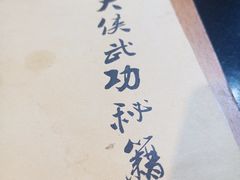 大侠武功秘籍